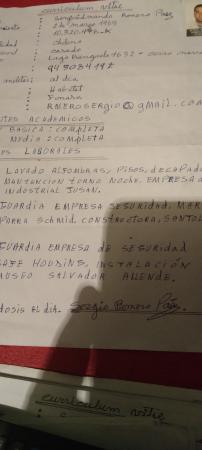 curriculum vitae
Romero Páez
marzo 1963
10.320.
chileno
casado
Lago Ranquil 1632 -
94508419
al día
Habitat
Fonasa
RMEROSERGIO@gmail.com
TES ACADEMICOS
BASICA: COMPLETA
MEDIA: COMPLETA
ES LABORALES
LAVADO ALFOMBRAS, PISOS, DECAPADO
MANTENCION TURNO NOCHE. EMPRESA
INDUSTRIAL JUSAN.
GUARDIA EMPRESA SEGURIDAD, MAR
PARRA SCHMID. CONSTRUCTORA, SANTOL
GUARDIA EMPRESA DE SEGURIDAD
SAFE HOUSING, INSTALACIÓN
MUSEO SALVADOR ALLENDE.
Sergio Romero Páez.
curriculum vitae